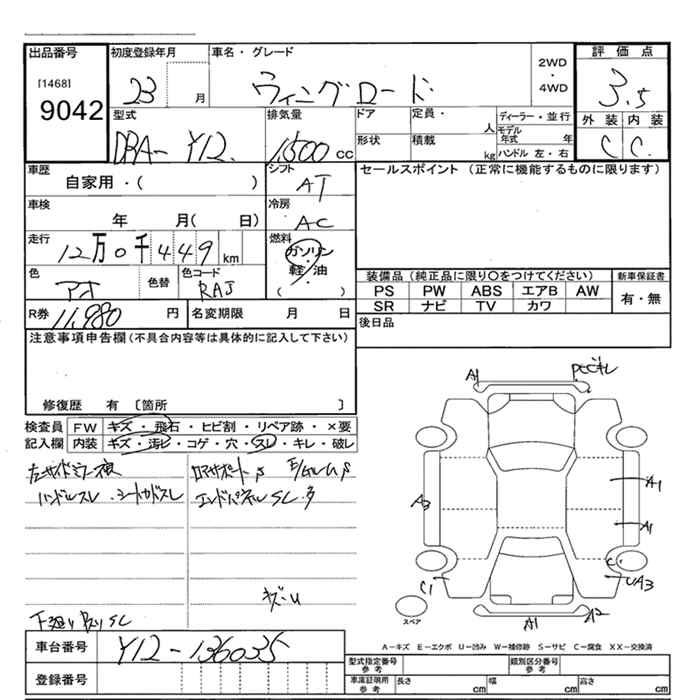 出品番号 初度登録年月 車名・グレード 評価点
[1468] 23 月 ウィングロード 2WD・4WD 3.5
9042 外装 内装
型式 排気量 ドア 定員・ 人 ディーラー・並行 C C.
DBA-Y12. 1,500 cc 形状 積載 kg モデル年式 年
ハンドル 左・右
車歴 シフト セールスポイント (正常に機能するものに限ります)
自家用・( ) AT
車検 冷房
年 月( 日) AC
走行 燃料
12万0千449km ガソリン・軽油
色 色替 色コード ( ) 装備品 (純正品に限り〇をつけてください) 新車保証書
アオ RAJ PS PW ABS エアB AW 有・無
SR ナビ TV カワ
R券 11,980 円 名変期限 月 日 後日品
注意事項申告欄(不具合内容等は具体的に記入して下さい)
修復歴 有 〔箇所 〕
検査員記入欄 FW キズ・飛石・ヒビ割・リペア跡・×要
内装 キズ・汚レ・コゲ・穴・スレ・キレ・破レ
ハンドルスレ
エンドパネルSL
キズ・U
下廻り SL
A1
A3
A1
A1
C1
C
UA3
A1
A2
スペア
車台番号 Y12-136035
A-キズ E-エクボ U-凹み W-補修跡 S-サビ C-腐食 XX-交換済
登録番号
型式指定番号 参考 類別区分番号 参考
車庫証明用 参考 長さ cm 幅 cm 高さ cm